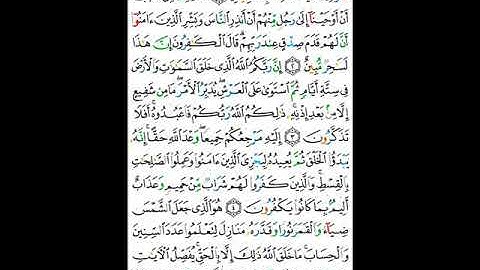 أَنْ أَوْحَيْنَآ إِلَىٰ رَجُلٍ مِّنْهُمْ أَنْ أَنذِرِ ٱلنَّاسَ وَبَشِّرِ ٱلَّذِينَ ءَامَنُوٓا۟
أَنَّ لَهُمْ قَدَمَ صِدْقٍ عِندَ رَبِّهِمْ ۗ قَالَ ٱلْكَٰفِرُونَ إِنَّ هَٰذَا
لَسَٰحِرٌ مُّبِينٌ ٢ إِنَّ رَبَّكُمُ ٱللَّهُ ٱلَّذِى خَلَقَ ٱلسَّمَٰوَٰتِ وَٱلْأَرْضَ
فِى سِتَّةِ أَيَّامٍ ثُمَّ ٱسْتَوَىٰ عَلَى ٱلْعَرْشِ ۖ يُدَبِّرُ ٱلْأَمْرَ ۖ مَا مِن شَفِيعٍ
إِلَّا مِنۢ بَعْدِ إِذْنِهِۦ ۚ ذَٰلِكُمُ ٱللَّهُ رَبُّكُمْ فَٱعْبُدُوهُ ۚ أَفَلَا
تَذَكَّرُونَ ٣ إِلَيْهِ مَرْجِعُكُمْ جَمِيعًا ۖ وَعْدَ ٱللَّهِ حَقًّا ۚ إِنَّهُۥ
يَبْدَؤُا۟ ٱلْخَلْقَ ثُمَّ يُعِيدُهُۥ لِيَجْزِىَ ٱلَّذِينَ ءَامَنُوا۟ وَعَمِلُوا۟ ٱلصَّٰلِحَٰتِ
بِٱلْقِسْطِ ۚ وَٱلَّذِينَ كَفَرُوا۟ لَهُمْ شَرَابٌ مِّنْ حَمِيمٍ وَعَذَابٌ
أَلِيمٌۢ بِمَا كَانُوا۟ يَكْفُرُونَ ٤ هُوَ ٱلَّذِى جَعَلَ ٱلشَّمْسَ
ضِيَآءً وَٱلْقَمَرَ نُورًا وَقَدَّرَهُۥ مَنَازِلَ لِتَعْلَمُوا۟ عَدَدَ ٱلسِّنِينَ
وَٱلْحِسَابَ ۚ مَا خَلَقَ ٱللَّهُ ذَٰلِكَ إِلَّا بِٱلْحَقِّ ۚ يُفَصِّلُ ٱلْءَايَٰتِ